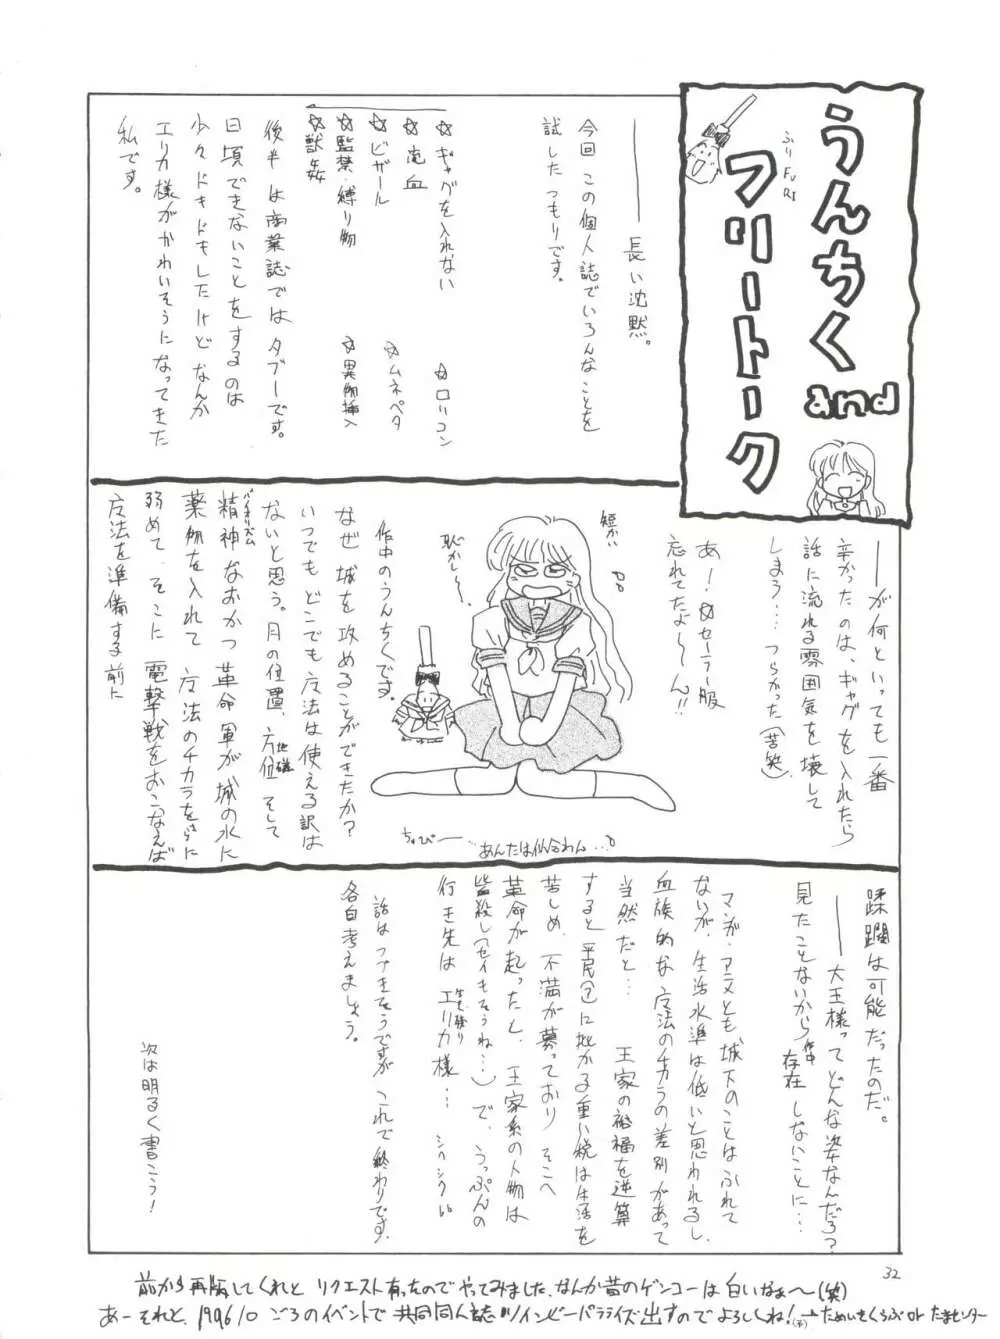 うんちく
and
フリートーク
ふりFURI
━━長い沈黙。
今回この個人誌でいろんなことを
試したつもりです。
☆ギャグを入れない ☆ロリコン
☆流血 ☆ムネペタ
☆ビザール
☆監禁・縛り物 ☆異物挿入
☆獣姦
後半は商業誌ではタブーです。
日頃できないことをするのは
少々ドキドキもしたけどなんか
エリカ様がかわいそうになってきた
私です。
━━が何といっても一番
辛かったのは、ギャグを入れたら
話に流れる雰囲気を壊して
しまう・・・つらかった(苦笑)
あ!☆セーラー服
忘れてたよ〜〜ん!!
短かい
恥かし〜〜
ちゅぴ━
あんたは似合わん・・・
作中のうんちくです。
なぜ城を攻めることができたか?
いつでもどこでも魔法は使える訳は
ないと思う。月の位置、方位 地磁 そして
精神 バイオリズム なおかつ革命軍が城の水に
薬物を入れて魔法のチカラをさらに
弱めて、そこに電撃戦をおこなえば
魔法を準備する前に
蹂躙は可能だったのだ。
━━大王様ってどんな姿なんだろ?
見たことないから作中存在しないことに・・・
マンガ・アニメとも城下のことはふれて
ないが、生活水準は低いと思われるし
血族的な魔法のチカラの差別があって
当然だと・・・ 王家の裕福を逆算
すると平民(?)に掛かる重い税は生活を
苦しめ、不満が募っており そこへ
革命が起ったと、王家系の人物は
皆殺し(セイもそうね・・・)で、うっぷんの
行き先は 生き残り エリカ様・・・ シクシク
話はつづきそうですが これで終わりです。
各自考えましょう。
次は明るく書こう!
32
前から再販してくれと リクエスト有ったのでやってみました、なんか昔のゲンコーは白いなぁ〜(笑)
あーそれと、1996/10 ごろのイベントで 共同同人誌 ツインビーパラライズ出すのでよろしくね!